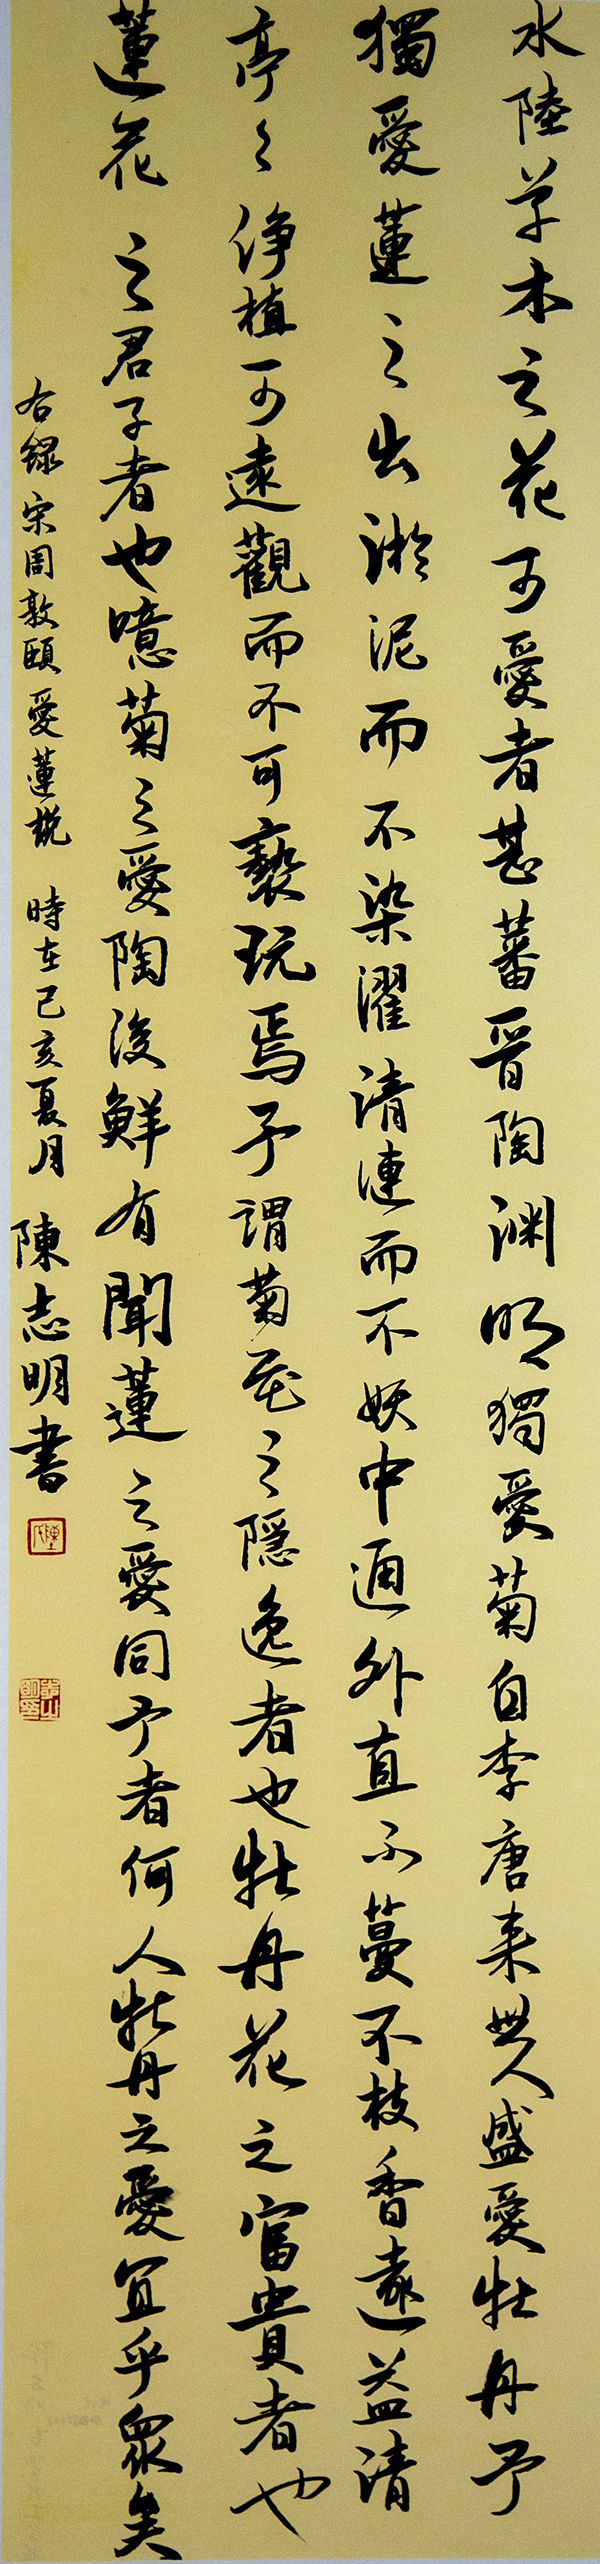 水陸草木之花可愛者甚蕃晉陶淵明獨愛菊自李唐来世人盛愛牡丹予
獨愛蓮之出淤泥而不染濯清漣而不妖中通外直不蔓不枝香遠益清
亭々净植可遠觀而不可褻玩焉予謂菊花之隱逸者也牡丹花之富貴者也
蓮花之君子者也噫菊之愛陶後鮮有聞蓮之愛同予者何人牡丹之愛宜乎眾矣
右録宋周敦頤愛蓮説 時在己亥夏月 陳志明書